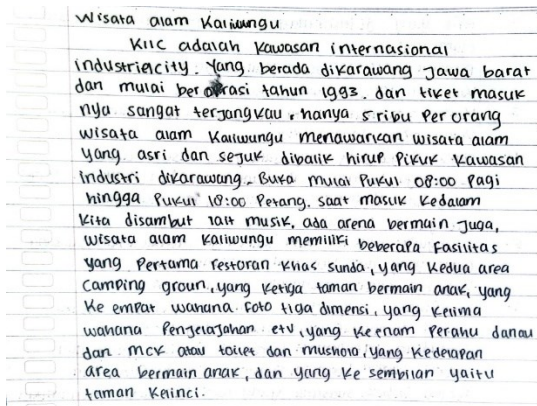 Wisata alam Kaliwungu
KIIC adalah kawasan internasional
industriescity. Yang berada dikarawang Jawa barat
dan mulai berorasi tahun 1993. dan tiket masuk
nya sangat terjangkau, hanya 5 ribu Per orang
wisata alam Kaliwungu menawarkan wisata alam
yang asri dan sejuk dibalik hirup Pikuk kawasan
industri dikarawang. Buka mulai Pukul 08:00 Pagi
hingga Pukul 18:00 Petang. saat masuk kedalam
kita disambut musik, ada arena bermain Juga,
wisata alam kaliwungu memiliki beberapa Fasilitas
yang Pertama restoran khas sunda, yang kedua area
Camping groun, yang ketiga taman bermain anak, yang
ke empat wahana foto tiga dimensi, yang kelima
wahana Penjelajahan etv, yang keenam Perahu danau
dan mck atau toilet dan mushola, yang kedelapan
area bermain anak, dan yang ke sembilan yaitu
taman kelinci.